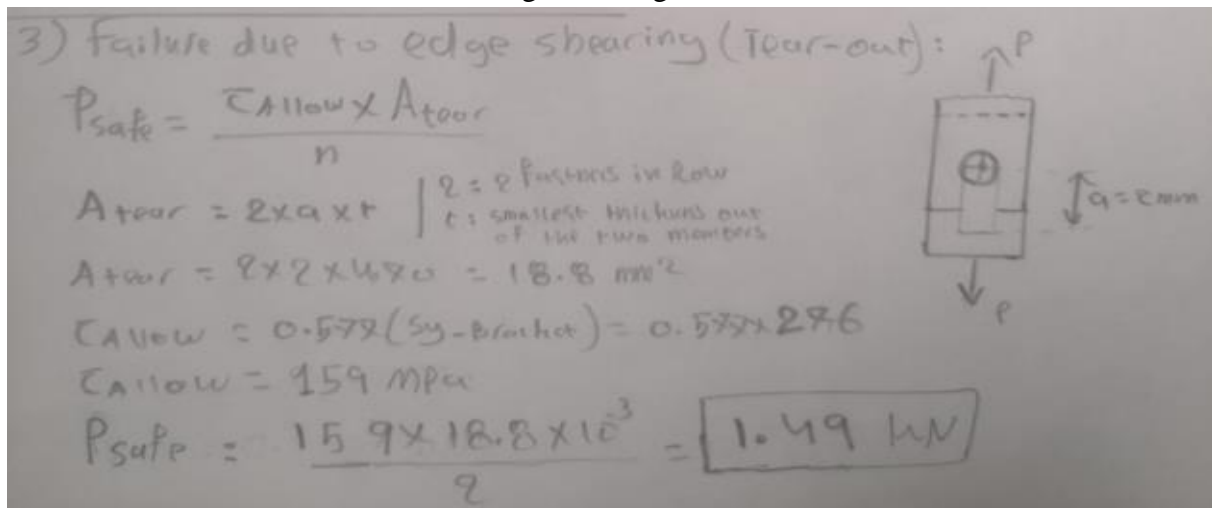 3) Failure due to edge shearing (Tear-out):
P
Psafe = τAllow x Atear / n
Atear = 2xaxt | 2 = 2 Fastners in Row
t: smallest thickness out of the two members
a = 2mm
Atear = 2x2x4.70 = 18.8 mm²
τAllow = 0.577(Sy-Bracket) = 0.577x276
P
τAllow = 159 MPa
Psafe = 159x18.8x10⁻³ / 2 = 1.49 kN